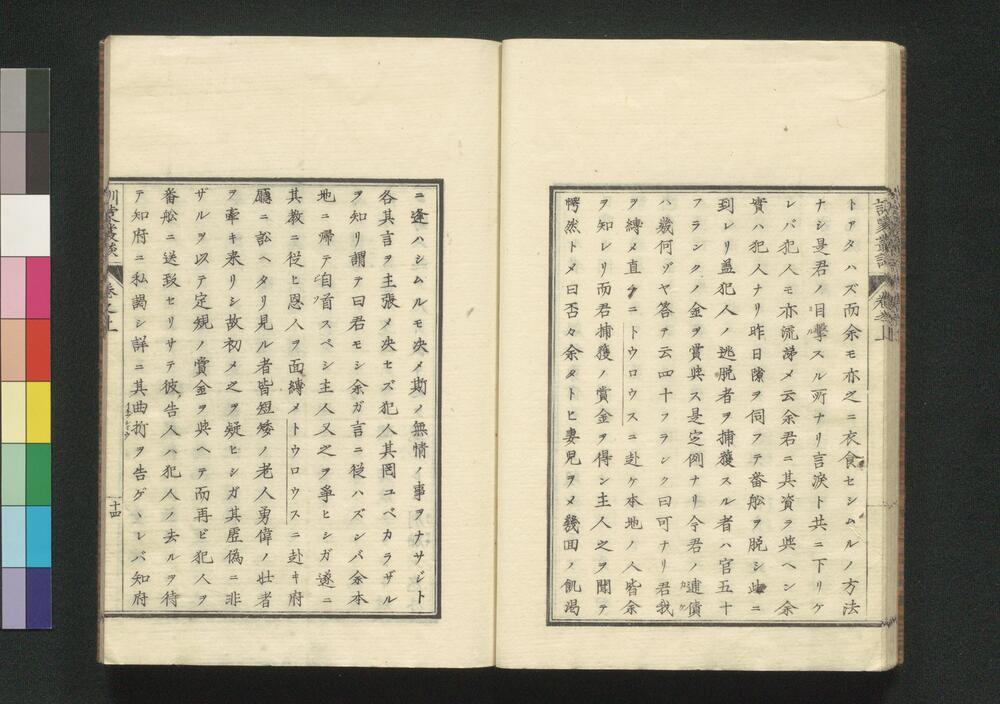 トアタハズ而余モ亦之ニ衣食セシムルノ方法
ナシ是君ノ目撃スル所ナリ言淚ト共ニ下リケ
レバ犯人モ亦流涕メ云余君ニ其資ヲ與ヘン余
實ハ犯人ナリ昨日隙ヲ伺フテ番舩ヲ脱シ此ニ
到レリ蓋犯人ノ逃脱者ヲ捕獲スル者ハ官五十
フランクノ金ヲ賞典ス是定例ナリ今君ノ逋債
ハ幾何ゾヤ答テ云四十フランク曰可ナリ君我
ヲ縛メ直チニトウロウスニ赴ケ本地ノ人皆余
ヲ知レリ而君捕獲ノ賞金ヲ得ン主人之ヲ聞テ
愕然トメ曰否々余タトヒ妻児ヲメ幾囬ノ飢渇
訓蒙叢談 卷之上
ニ逢ハシムルモ决メ斯ノ無情ノ事ヲナサジト
各其言ヲ主張メ决セズ犯人其罔ユベカラザル
ヲ知リ謂テ曰君モシ余ガ言ニ從ハズンバ余本
地ニ帰テ自首スベシ主人又之ヲ爭ヒシガ遂ニ
其教ニ從ヒ恩人ヲ面縛メトウロウスニ赴キ府
廳ニ訟ヘタリ見ル者皆短矮ノ老人勇偉ノ壮者
ヲ牽キ来リシ故初メ之ヲ疑ヒシガ其虛偽ニ非
ザルヲ以テ定規ノ賞金ヲ與ヘテ而再ビ犯人ヲ
番舩ニ送致セリサテ彼告人ハ犯人ノ去ルヲ待
テ知府ニ私謁シ詳ニ其曲折ヲ告ゲヽレバ知府
訓蒙叢談 卷之上 十四